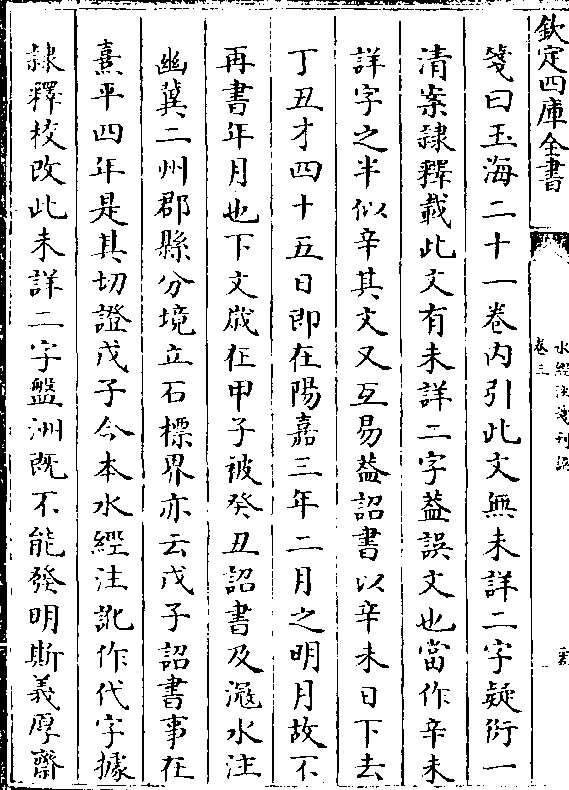 欽定四庫全書
水經注箋刊誤
卷三
箋曰玉海二十一卷内引此文無未詳二字疑衍一
清案隷釋載此文有未詳二字葢誤文也當作辛未
詳字之半似辛其文又互易葢詔書以辛未日下去
丁丑才四十五日即在陽嘉三年二月之明月故不
再書年月也下文歳在甲子被癸丑詔書及㶟水注
幽冀二州郡縣分境立石標界亦云戊子詔書事在
熹平四年是其切證戊子今本水經注訛作代字據
隷釋校改此未詳二字盤洲既不能發明斯義厚齋